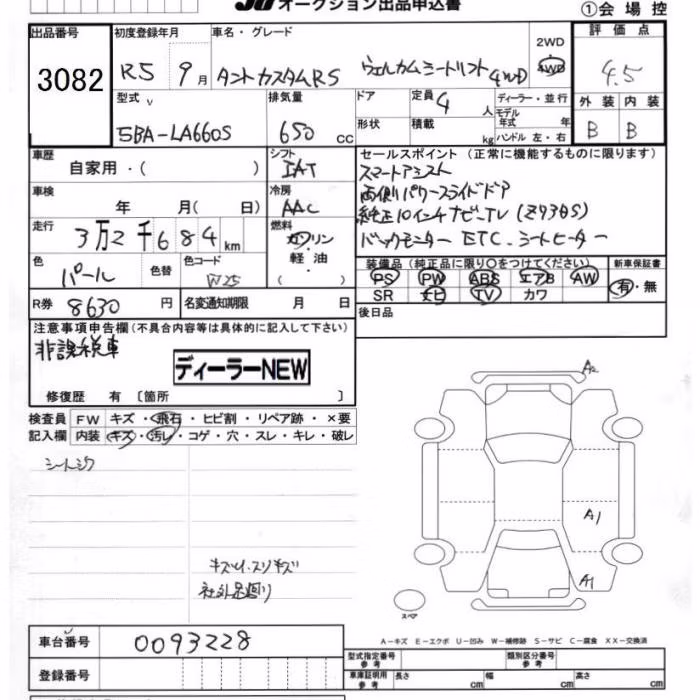 JU オークション出品申込書
①会場控
出品番号
3082
初度登録年月
R5 9月
車名・グレード
タントカスタムRS ウェルカムシートリフト 4WD
2WD
4WD
評価点
4.5
型式
5BA-LA660S
排気量
650 cc
ドア
定員
4 人
ディーラー・並行
モデル年式 年
形状
積載 kg
ハンドル 左・右
外装 内装
B B
車歴
自家用・( )
シフト
IAT
車検
年 月( 日)
冷房
AAC
走行
3万2千684km
燃料
ガソリン
・
軽油
( )
セールスポイント(正常に機能するものに限ります)
スマートアシスト
両側パワースライドドア
純正10インチナビ.TV (Z9385)
バックモニター ETC.シートヒーター
色
パール
色替
色コード
W25
装備品(純正品に限り○をつけてください)
PS PW ABS エアB AW
SR ナビ TV カワ
新車保証書
有・無
R券
8630 円
名変通知期限 月 日
後日品
注意事項申告欄(不具合内容等は具体的に記入して下さい)
非課税車
ディーラーNEW
修復歴 有〔箇所 〕
検査員記入欄
FW キズ・飛石・ヒビ割・リペア跡・×要
内装 キズ・汚レ・コゲ・穴・スレ・キレ・破レ
シートシワ
キズ凹.スリキズ
社外品廻り
A2
A1
A1
スペア
A-キズ E-エクボ U-凹み W-補修跡 S-サビ C-腐食 XX-交換済
車台番号
0093228
型式指定番号 参考
類別区分番号 参考
登録番号
車庫証明用 参考
長さ cm
幅 cm
高さ cm